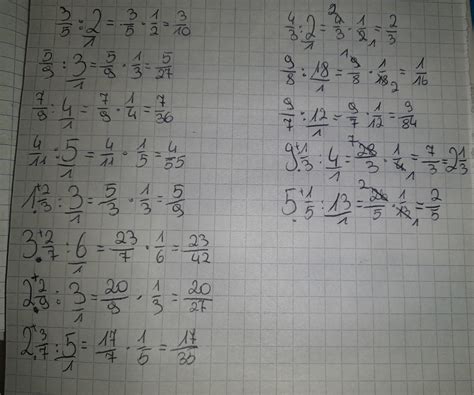 3/5 : 2/1 = 3/5 · 1/2 = 3/10
5/9 : 3/1 = 5/9 · 1/3 = 5/27
7/9 : 4/1 = 7/9 · 1/4 = 7/36
4/11 : 5/1 = 4/11 · 1/5 = 4/55
1 2/3 : 3/1 = 5/3 · 1/3 = 5/9
3 2/7 : 6/1 = 23/7 · 1/6 = 23/42
2 2/9 : 3/1 = 20/9 · 1/3 = 20/27
2 3/7 : 5/1 = 17/7 · 1/5 = 17/35
4/3 : 2/1 = 4/3 · 1/2 = 2/3
9/8 : 18/1 = 9/8 · 1/18 = 1/16
9/7 : 12/1 = 9/7 · 1/12 = 9/84
9 1/3 : 4/1 = 28/3 · 1/4 = 7/3 = 2 1/3
5 1/5 : 13/1 = 26/5 · 1/13 = 2/5